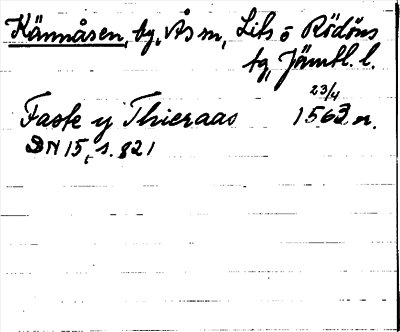 Kännåsen, by, Ås sn, Lits o Rödöns
tg, Jämtl. l.
23/4
Faste y Thieraas 1563 or.
DN 15, s. 821